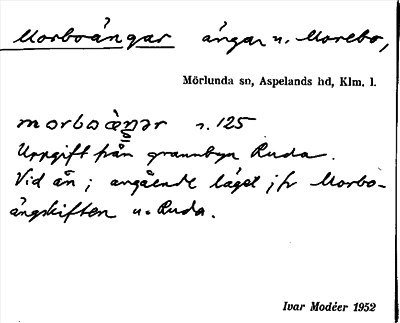 Morboängar ängar u. Morebo,
Mörlunda sn, Aspelands hd, Klm. l.
s. 125
Uppgift från grannbyn Ruda.
Vid ån; angående läget jfr Morbo-
ängskiften u. Ruda.
Ivar Modéer 1952